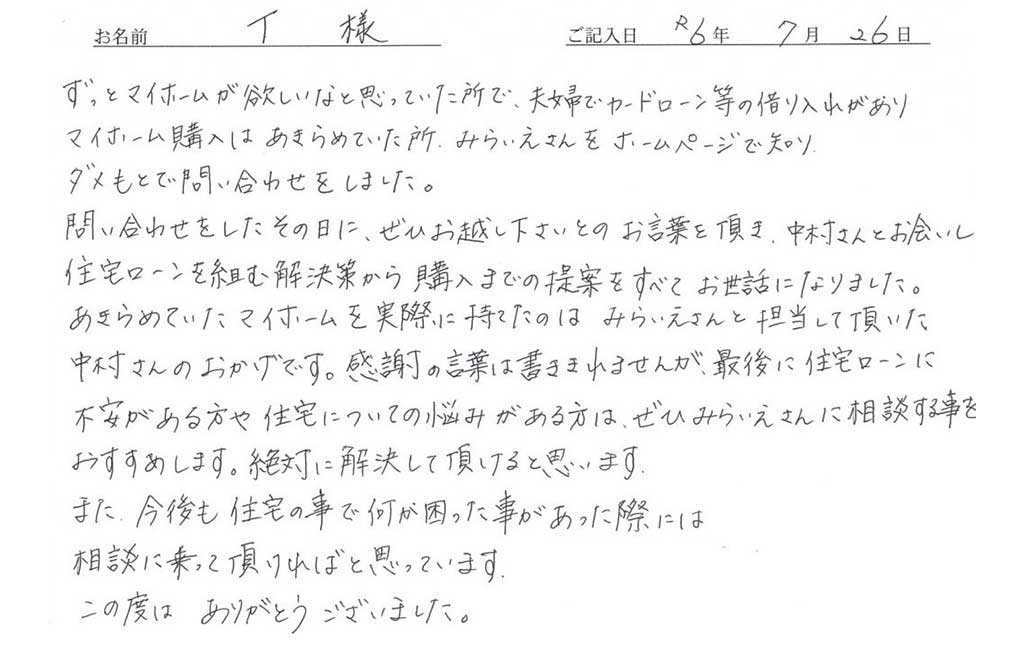 お名前 T 様 ご記入日 R6年 7月 26日
ずっとマイホームが欲しいなと思っていた所で、夫婦でカードローン等の借り入れがあり
マイホーム購入はあきらめていた所、みらいえさんをホームページで知り、
ダメもとで問い合わせをしました。
問い合わせをしたその日に、ぜひお越し下さいとのお言葉を頂き、中村さんとお会いし
住宅ローンを組む解決策から購入までの提案をすべてお世話になりました。
あきらめていたマイホームを実際に持てたのはみらいえさんと担当して頂いた
中村さんのおかげです。感謝の言葉は書ききれませんが、最後に住宅ローンに
不安がある方や住宅についての悩みがある方は、ぜひみらいえさんに相談する事を
おすすめします。絶対に解決して頂けると思います。
また、今後も住宅の事で何か困った事があった際には
相談に乗って頂ければと思っています。
この度はありがとうございました。